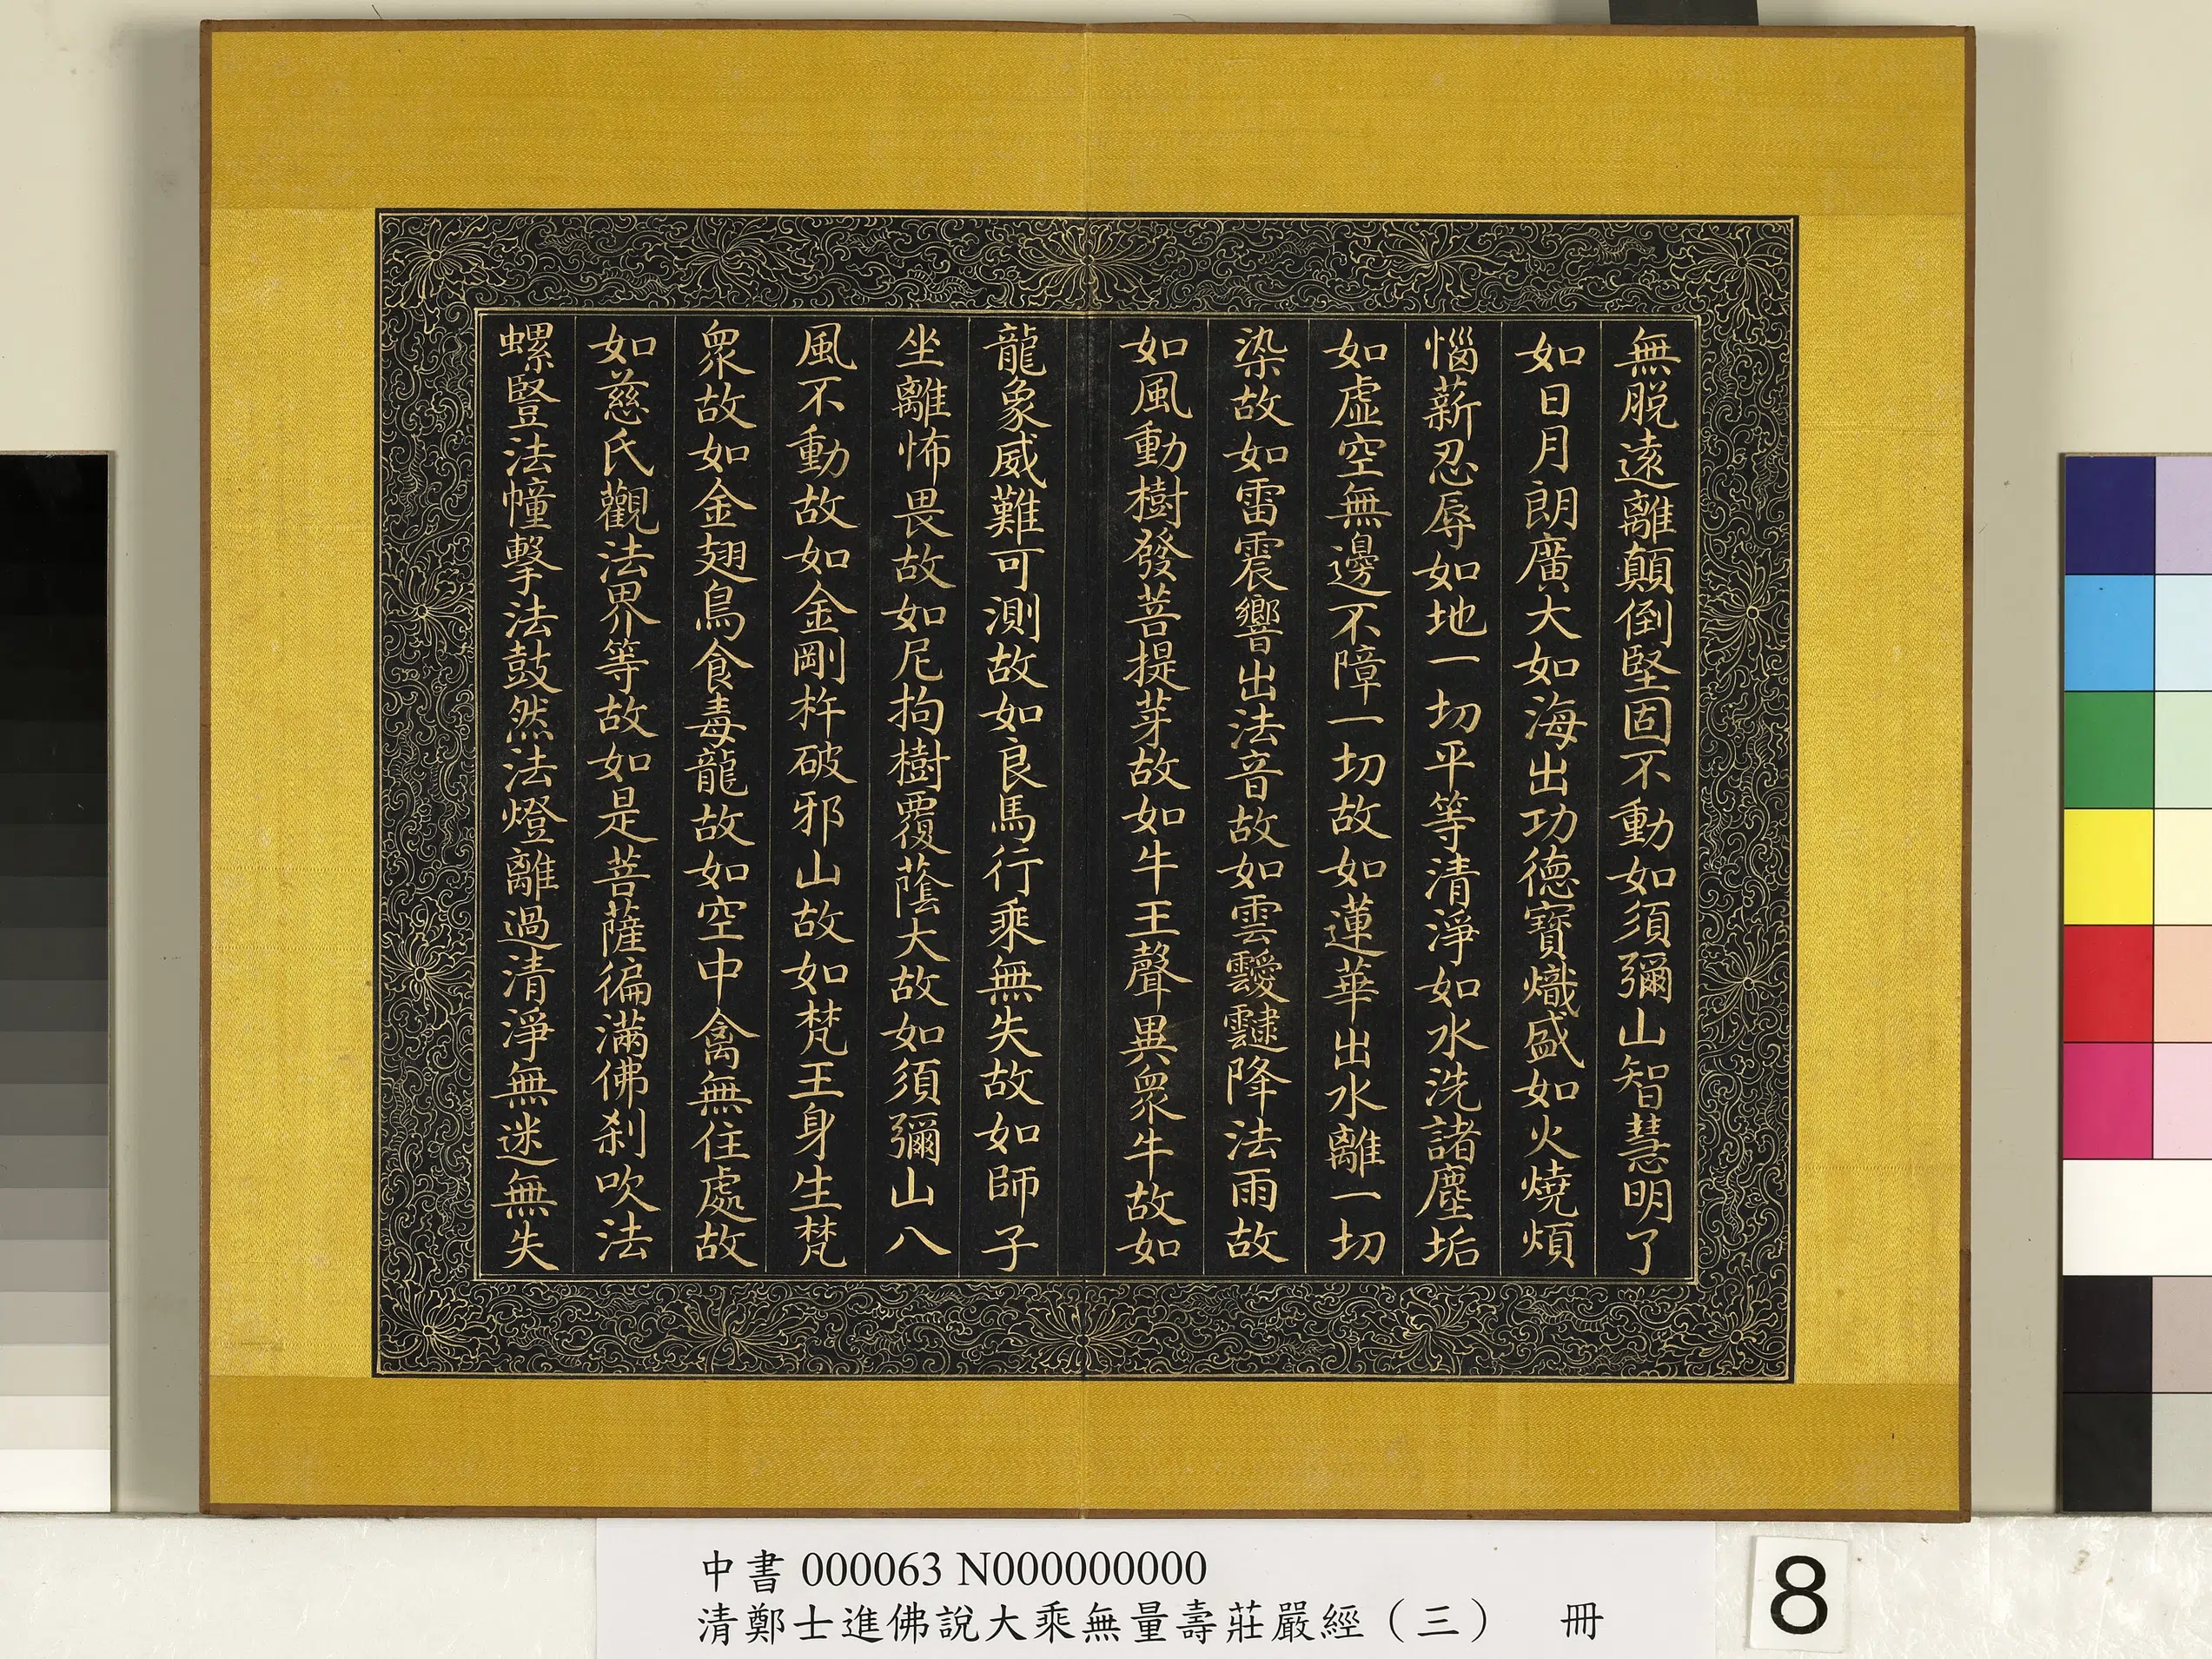 無脫遠離顛倒堅固不動如須彌山智慧明了
如日月朗廣大如海出功德寶熾盛如火燒煩
惱薪忍辱如地一切平等清淨如水洗諸塵垢
如虛空無邊不障一切故如蓮華出水離一切
染故如雷震響出法音故如雲靉靆降法雨故
如風動樹發菩提芽故如牛王聲異衆牛故如
龍象威難可測故如良馬行乘無失故如師子
坐離怖畏故如尼拘樹覆蔭大故如須彌山八
風不動故如金剛杵破邪山故如梵王身生梵
衆故如金翅鳥食毒龍故如空中禽無住處故
如慈氏觀法界等故如是菩薩徧滿佛刹吹法
螺豎法幢擊法鼓然法燈離過清淨無迷無失
中書 000063 N000000000
清鄭士進佛說大乘無量壽莊嚴經（三） 冊
8